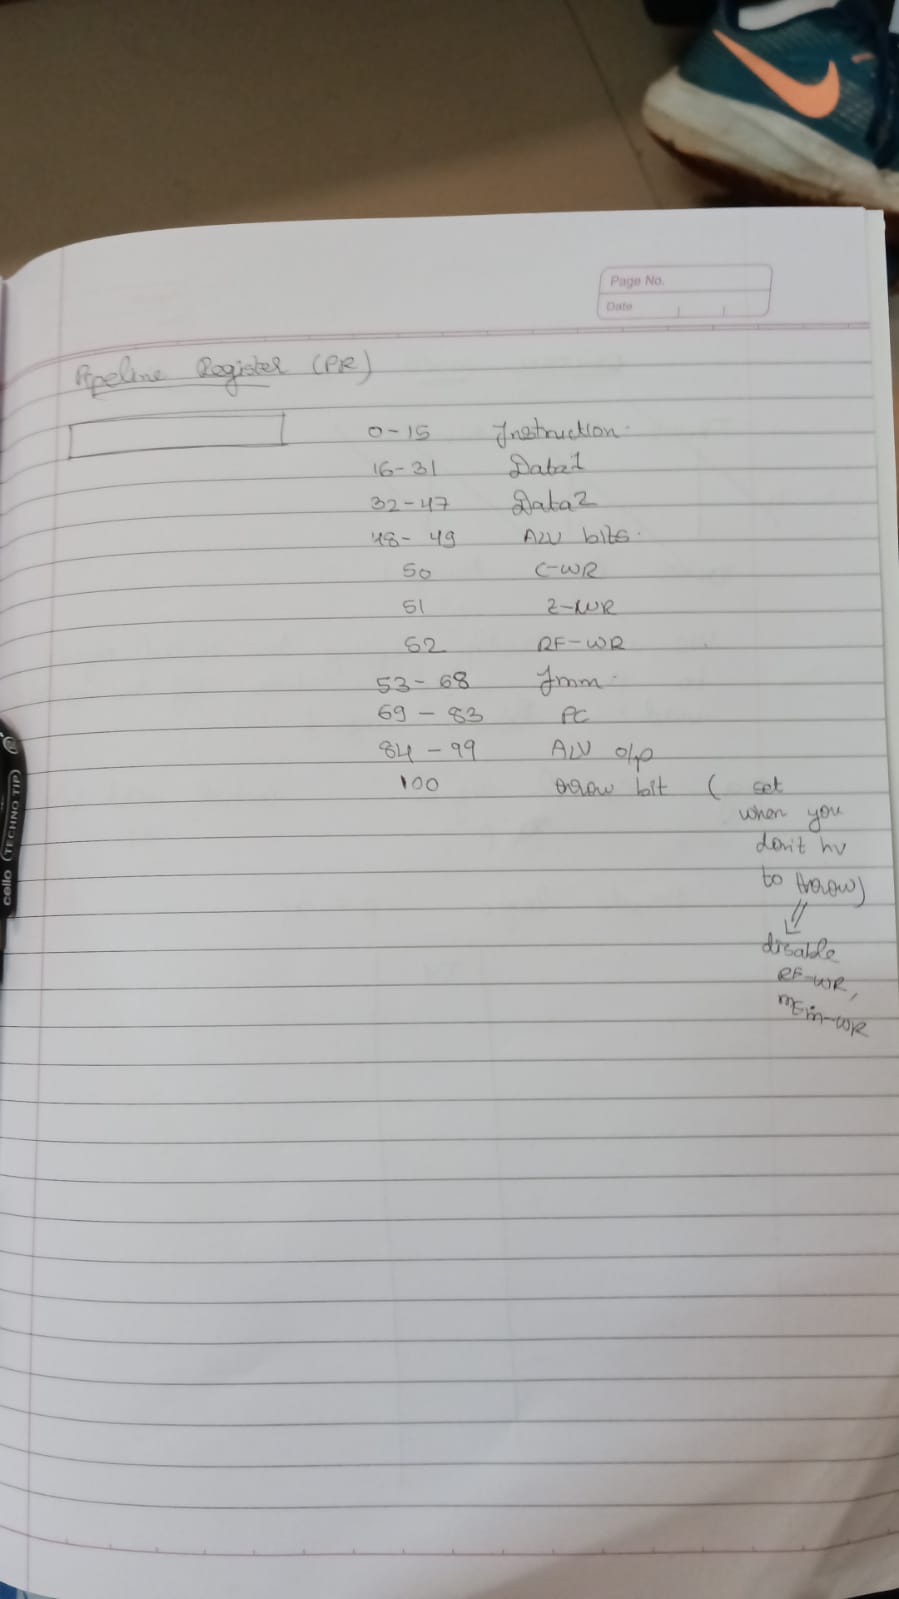 Page No.
Date
Pipeline Register (PR)
0-15 Instruction
16-31 Data1
32-47 Data2
48-49 ALU bits
50 C-WR
51 Z-WR
52 RF-WR
53-68 Imm
69-83 PC
84-99 ALU o/p
100 throw bit ( set
when you
don't hv
to throw)
disable
RF-WR,
mEm-WR
cello (TECHNO TIP)